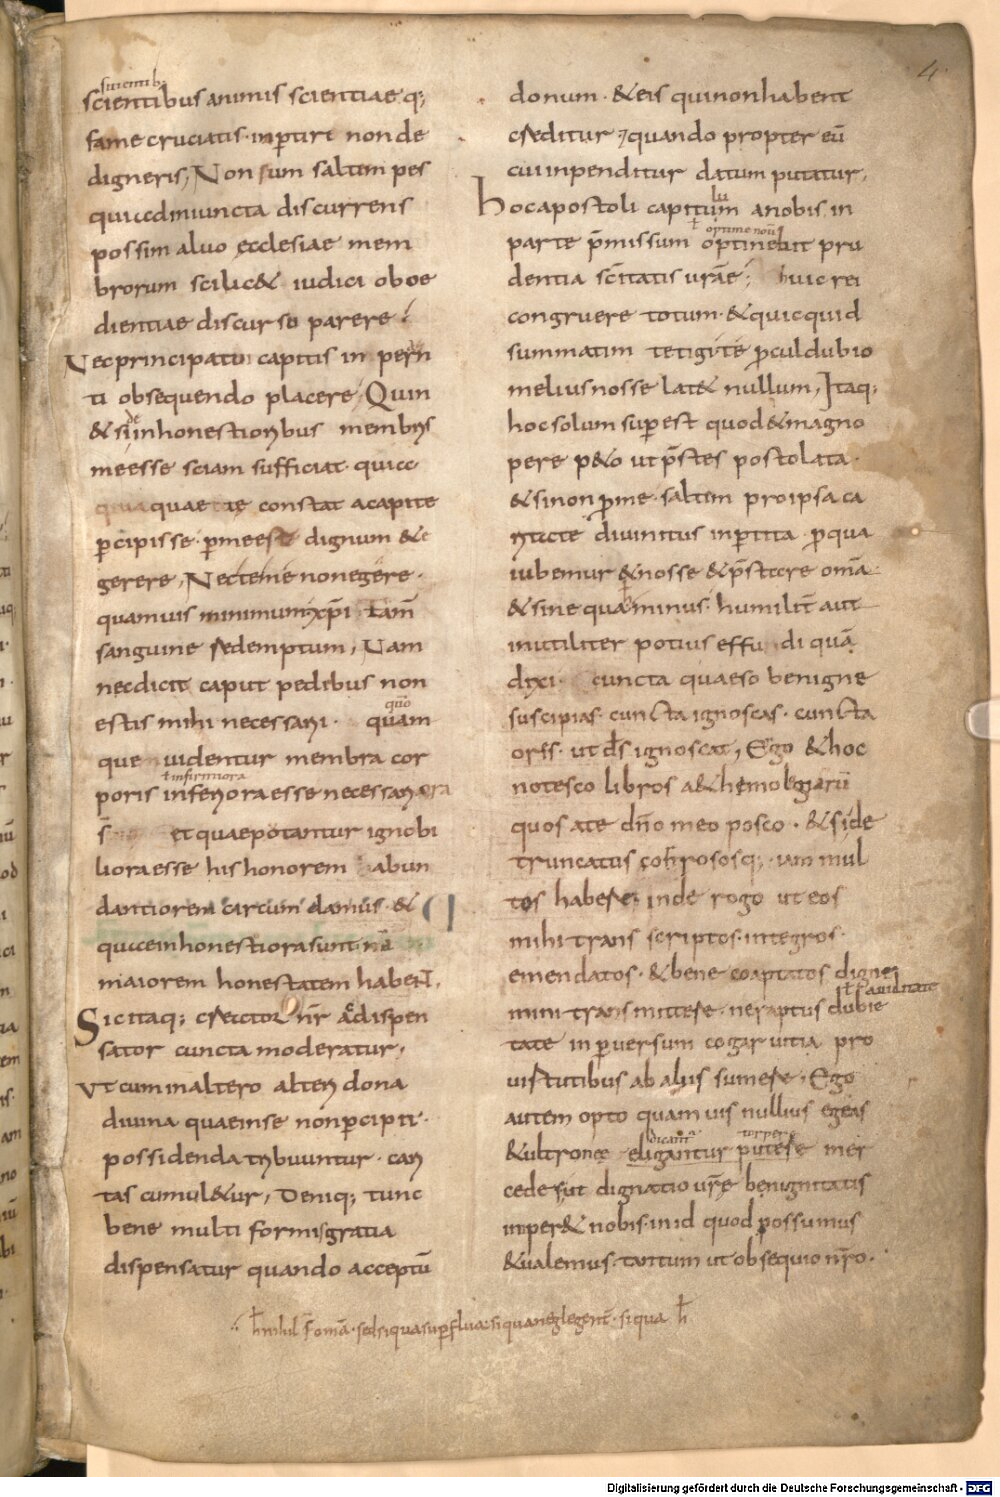 4
sitientib;
scientibus animis scientiae q;
fame cruciatis· inptire non de
digneris, Non sum saltem pes
qui ad iniuncta discurrens
possim aluo ecclesiae mem
brorum scilic& iudici oboe
dientiae discurso parere?
Nec principatu capitis in
ti obsequendo placere, Quin
& si inhonestioribus membris
de
me esse sciam sufficiat· quia
quaetae constat a capite
pcipisse· p me est dignum &
gerere, Nec teme non egere·
quamuis minimum xp̄i tam̄
sanguine redemptum, Nam
nec dicit caput pedibus non
estis mihi necessarii· quam
quō
que uidentur membra cor
ł infirmiora
poris inferiora esse necessariora
s̄ et quae potantur ignobi
liora esse his honorem abun
dantiorem circum damus· &
quae inhonestiora sunt nr̄a
maiorem honestatem habent,
Sic itaq; creator nr̄ & dispen
sator cuncta moderatur,
Ut cum in altero alteri dona
diuina quae in se non pcipit·
possidenda tribuuntur· cari
tas cumul&ur, Deniq; tunc
bene multiformis gratia
dispensatur quando acceptū
donum· & eis qui non habent
creditur, & quando propter eū
cui inpenditur datum putatur,
Hoc apostoli capitulum a nobis in
ł optime nouit
parte p̄missum optinebit pru
dentia sc̄itatis ur̄ae; huic rei
congruere totum· & quicquid
summatim tetigi te pculdubio
melius nosse lat& nullum, Itaq;
hoc solum supest quod & magno
pere p&o ut p̄stes postolata·
& si non p me· saltem pro ipsa ca
ritate diuinitus inptita· p qua
iubemur & nosse & p̄stare om̄a
& sine qua minus· humilit̄ aut
inutiliter potius effudi quā
dixi· cuncta quaeso benigne
suscipias· cuncta ignoscas· cuncta
ores· ut d̄s ignoscat, Ego & hoc
notesco libros a& hemologiarū
quos a te dn̄o meo posco· & si de
truncatus corrososq; iam mul
tos habere; inde rogo ut eos
mihi transscriptos· integros·
emendatos· & bene coaptatos digne
mini transmittere· ne raptus dubie
ł auiditate
tate in puersum cogar uitia pro
uirtutibus ab aliis sumere, Ego
autem opto quamuis nullius egeas
& ultronee eligantur putere mer
torpere
cede sut dignatio ur̄e benignitatis
inper& nobis· in id quod possumus
& ualemus· tantum ut obsequio nr̄o·
nihil om̄a· sed siqua supflua· siqua neglegent̄· siqua
Digitalisierung gefördert durch die Deutsche Forschungsgemeinschaft - DFG